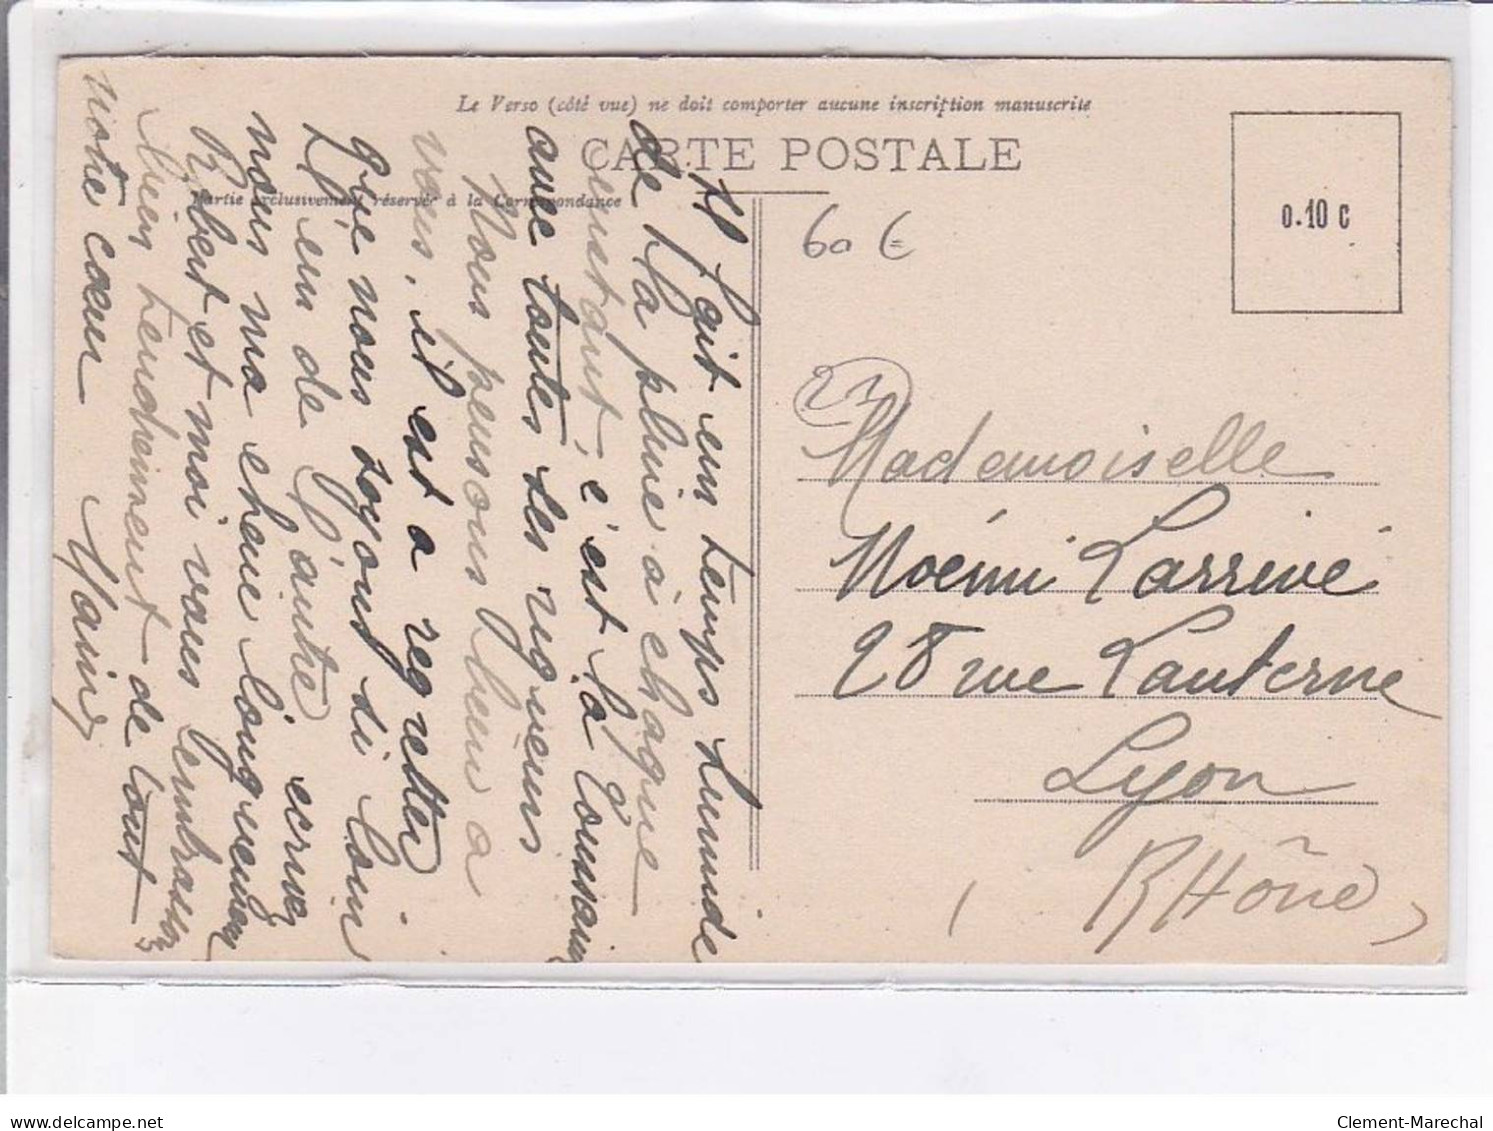 Le Verso (côté vue) ne doit comporter aucune inscription manuscrite
CARTE POSTALE
Partie exclusivement réservée à la Correspondance
0.10 c
60 €
Il fait un temps humide
de la pluie à chaque
instant, c'est la Toussain
avec toutes ses rigueurs
Nous pensons bien a
vous, il est a regretter
que nous soyons si loin
l'un de l'autre ecrivez
nous ma chere longuement
Robert et moi vous embrassons
bien tendrement de tout
notre cœur
21
Mademoiselle
Noémi Larrivé
28 rue Lanterne
Lyon
(RHône)
delcampe.net
Clement-Marechal